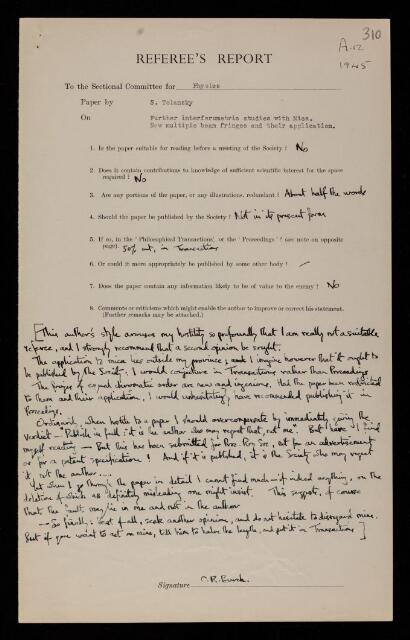 310
A.12
1945
REFEREE'S REPORT
To the Sectional Committee for Physics
Paper by S. Tolansky
On Further interferometric studies with Mica.
New multiple beam fringes and their application.
1. Is the paper suitable for reading before a meeting of the Society? No
2. Does it contain contributions to knowledge of sufficient scientific interest for the space
required? No
3. Are any portions of the paper, or any illustrations, redundant? About half the words
4. Should the paper be published by the Society? Not in its present form
5. If so, in the 'Philosophical Transactions' or the 'Proceedings'? (see note on opposite
page). 50% cut, in Transactions
6. Or could it more appropriately be published by some other body? –
7. Does the paper contain any information likely to be of value to the enemy? No
8. Comments or criticisms which might enable the author to improve or correct his statement.
(Further remarks may be attached.)
[This author's style arouses my hostility so profoundly that I am really not a suitable
referee, and I strongly recommend that a second opinion be sought.
The application to mica lies outside my province, and I imagine however that it ought to
be published by the Society; I would conjecture in Transactions rather than Proceedings
The fringes of equal chromatic order are new and ingenious. Had the paper been restricted
to them and their application, I would unhesitatingly have recommended publishing it in
Proceedings.
Ordinarily, when hostile to a paper I should overcompensate by immediately giving the
verdict "Publish in full: it is the author who may regret that, not me". But here I find
myself reading on "But this has been submitted for Proc. Roy. Soc., not for an advertisement
or for a patent specification! And if it is published, it is the Society who may regret
it, not the author....
Yet when I go through the paper in detail I cannot find much if indeed anything, on the
deletion of which as definitely misleading one might insist. This suggests, of course
that the fault may lie in me and not in the author
— So finally: first of all, seek another opinion, and do not hesitate to disregard mine.
But if you want to act on mine, tell him to halve the length, and put it in Transactions]
Signature C.R. Burch.